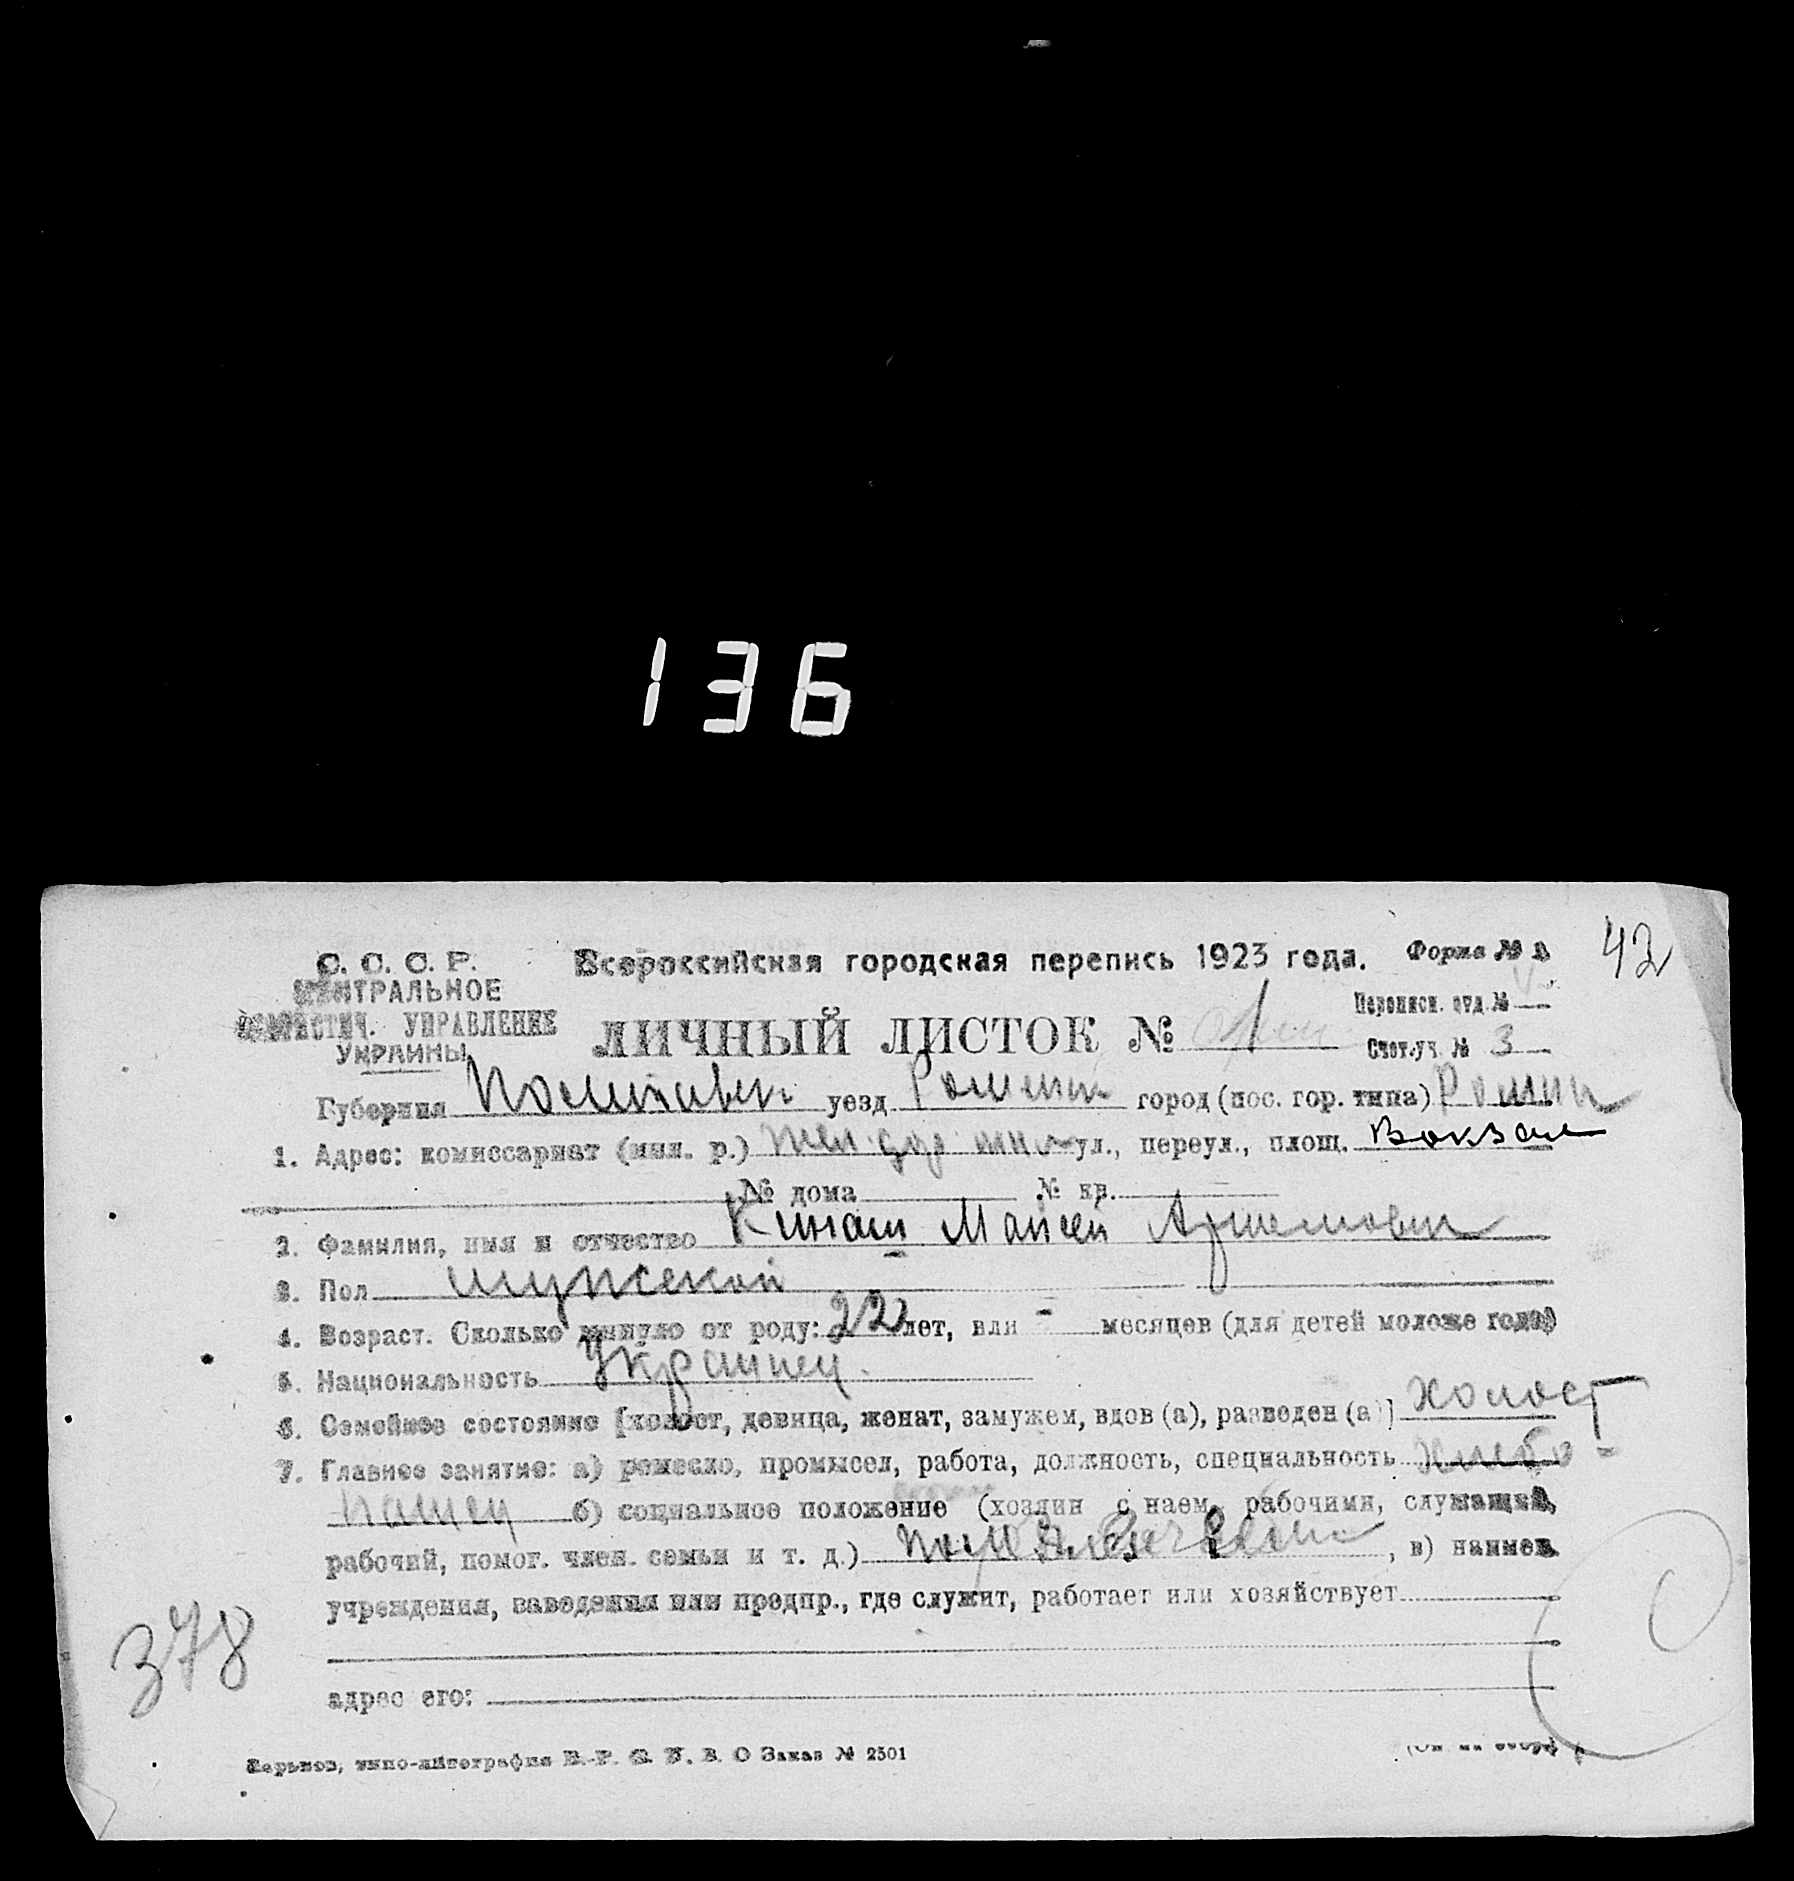 136
42
С. С. С. Р.
ЦЕНТРАЛЬНОЕ
СТАТИСТИЧ. УПРАВЛЕНИЕ
УКРАИНЫ
Всероссийская городская перепись 1923 года.
Форма № 1
ЛИЧНЫЙ ЛИСТОК №
Переписн. отд. №
Счет. уч. № 3
Губерния Полтавск уезд Роменск город (пос. гор. типа) Ромни
1. Адрес: комиссариат (мил. р.) жел. дор. ул., переул., площ. Вокзал
№ дома № кв.
2. Фамилия, имя и отчество Кинаш Мойсей Артемович
3. Пол мужской
4. Возраст. Сколько минуло от роду: 22 лет, или - месяцев (для детей моложе года)
5. Национальность Украинец.
6. Семейное состояние [холост, девица, женат, замужем, вдов (а), разведен (а)] холост
7. Главное занятие: а) ремесло, промысел, работа, должность, специальность хлебо-
пашец б) социальное положение (хозяин с наем. рабочими, служащий,
рабочий, помог. член. семьи и т. д.) , в) наимен.
учреждения, заведения или предпр., где служит, работает или хозяйствует
378
адрес его:
Харьков, типо-литография Заказ № 2501